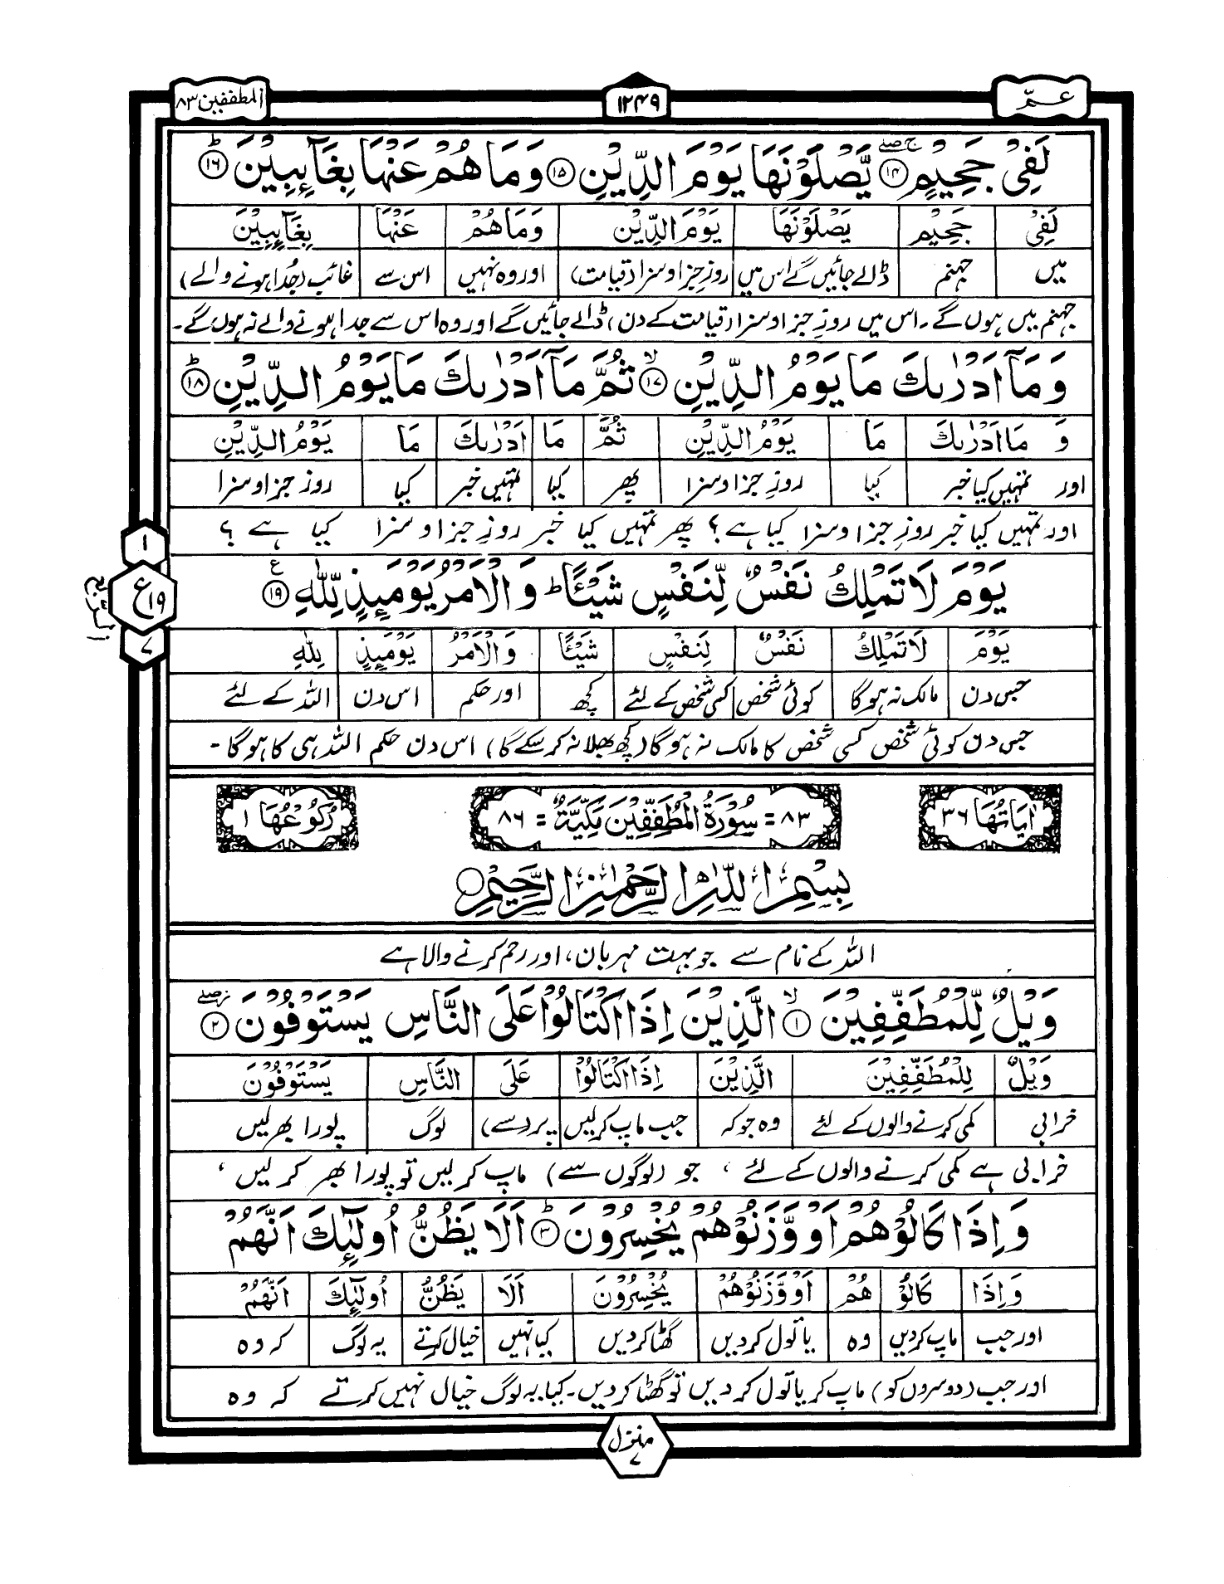 عـمّ ١٢٤٩ المطففين ٨٣
لَفِىْ جَحِيْمٍ ۝۱۴ ۚۖ يَّصْلَوْنَهَا يَوْمَ الدِّيْنِ ۝۱۵ وَمَا هُمْ عَنْهَا بِغَآئِبِيْنَ ۝۱۶ؕ
لَفِىْ جَحِيْمٍ يَصْلَوْنَهَا يَوْمَ الدِّيْنِ وَمَا هُمْ عَنْهَا بِغَآئِبِيْنَ
میں جہنم ڈالے جائیں گے اس میں روزِ جزا و سزا (قیامت) اور وہ نہیں اس سے غائب (جُدا ہونے والے)
جہنم میں ہوں گے۔ اس میں روزِ جزا و سزا (قیامت کے دن) ڈالے جائیں گے اور وہ اس سے جدا ہونے والے نہ ہوں گے۔
وَمَآ اَدْرٰىكَ مَا يَوْمُ الدِّيْنِ ۝۱۷ۙ ثُمَّ مَآ اَدْرٰىكَ مَا يَوْمُ الدِّيْنِ ۝۱۸ؕ
وَ مَا اَدْرٰىكَ مَا يَوْمُ الدِّيْنِ ثُمَّ مَا اَدْرٰىكَ مَا يَوْمُ الدِّيْنِ
اور تمہیں کیا خبر کیا روزِ جزا و سزا پھر کیا تمہیں خبر کیا روزِ جزا و سزا
اور تمہیں کیا خبر روزِ جزا و سزا کیا ہے؟ پھر تمہیں کیا خبر روزِ جزا و سزا کیا ہے ؟
يَوْمَ لَا تَمْلِكُ نَفْسٌ لِّنَفْسٍ شَيْـًٔا ؕ وَالْاَمْرُ يَوْمَئِذٍ لِّلّٰهِ ۝۱۹
۱
ع ۱۹
۷
يَوْمَ لَا تَمْلِكُ نَفْسٌ لِنَفْسٍ شَيْـًٔا وَالْاَمْرُ يَوْمَئِذٍ لِلّٰهِ
جس دن مالک نہ ہوگا کوئی شخص کسی شخص کے لئے کچھ اور حکم اس دن اللہ کے لئے
جس دن کوئی شخص کسی شخص کا مالک نہ ہوگا (کچھ بھلا نہ کر سکے گا) اس دن حکم اللہ ہی کا ہوگا۔
اٰيَاتُهَا ۳۶ ۸۳ = سُوْرَةُ الْمُطَفِّفِيْنَ مَكِّيَّةٌ = ۸۶ رُكُوْعُهَا ۱
بِسْمِ اللّٰهِ الرَّحْمٰنِ الرَّحِيْمِ
اللہ کے نام سے جو بہت مہربان، اور رحم کرنے والا ہے
وَيْلٌ لِّلْمُطَفِّفِيْنَ ۝۱ۙ الَّذِيْنَ اِذَا اكْتَالُوْا عَلَى النَّاسِ يَسْتَوْفُوْنَ ۝۲
وَيْلٌ لِلْمُطَفِّفِيْنَ الَّذِيْنَ اِذَا اكْتَالُوْا عَلَى النَّاسِ يَسْتَوْفُوْنَ
خرابی کمی کرنے والوں کے لئے وہ جو کہ جب ماپ کر لیں پر (سے) لوگ پورا بھر لیں
خرابی ہے کمی کرنے والوں کے لئے ، جو (لوگوں سے) ماپ کر لیں تو پورا بھر کر لیں ،
وَاِذَا كَالُوْهُمْ اَوْ وَّزَنُوْهُمْ يُخْسِرُوْنَ ۝۳ؕ اَلَا يَظُنُّ اُولٰٓئِكَ اَنَّهُمْ
وَاِذَا كَالُوْ هُمْ اَوْ وَّزَنُوْهُمْ يُخْسِرُوْنَ اَلَا يَظُنُّ اُولٰٓئِكَ اَنَّهُمْ
اور جب ماپ کر دیں وہ یا تول کر دیں گھٹا کر دیں کیا نہیں خیال کرتے یہ لوگ کہ وہ
اور جب (دوسروں کو) ماپ کر یا تول کر دیں تو گھٹا کر دیں۔ کیا یہ لوگ خیال نہیں کرتے کہ وہ
منزل ۷